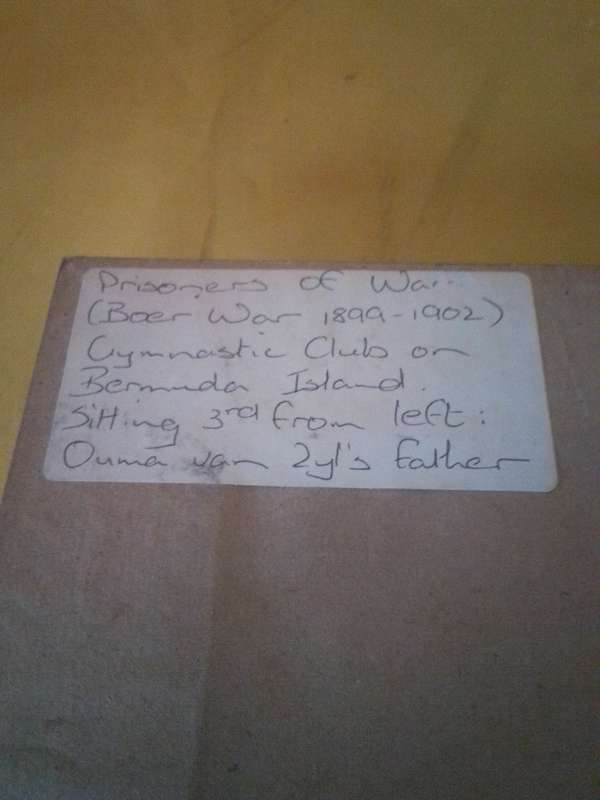 Prisoners of War
(Boer War 1899-1902)
Gymnastic Club on
Bermuda Island.
Sitting 3rd from left:
Ouma van Zyl's father